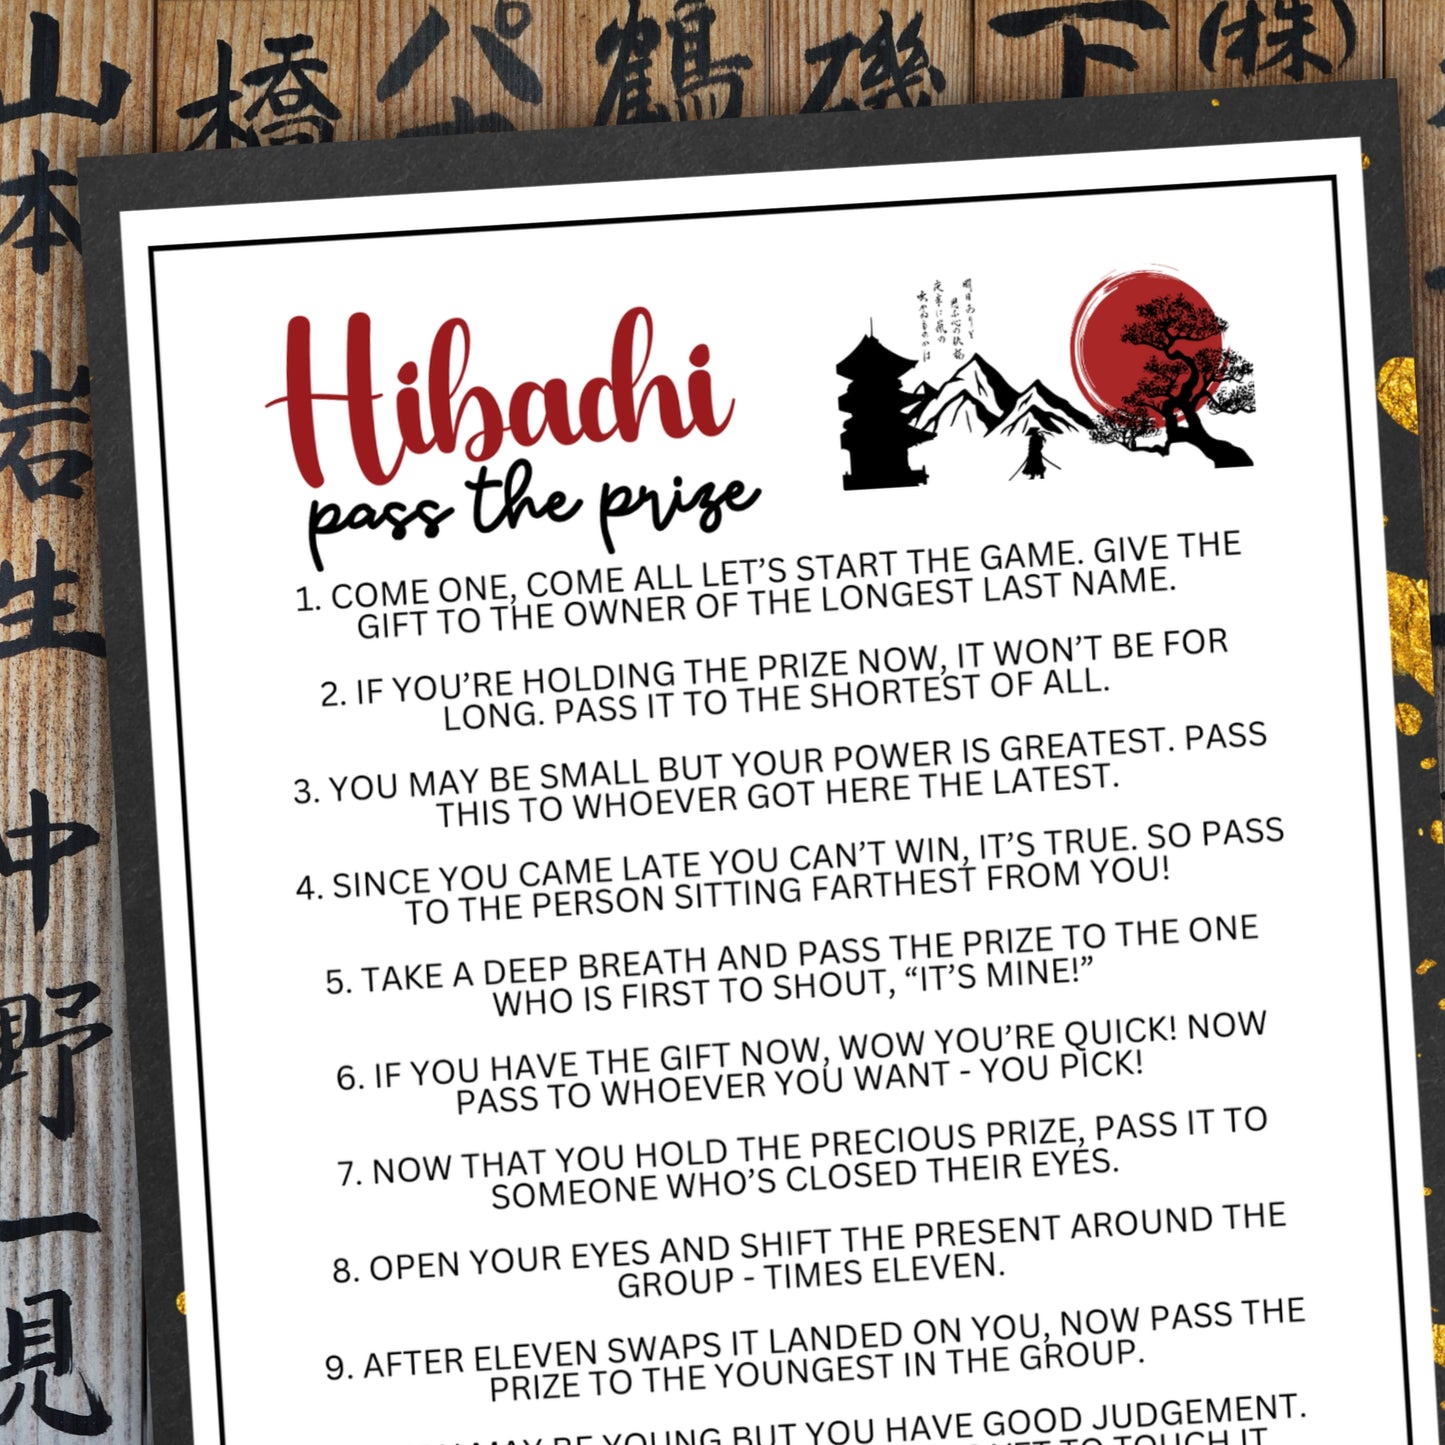 山
橋
パ
鶴
磯
下
(株)
本
岩
生
中
野
一
見
Hibachi
pass the prize
明日ありと
思ふ心の仇桜
夜半に嵐の
吹かぬものかは
1. COME ONE, COME ALL LET’S START THE GAME. GIVE THE
GIFT TO THE OWNER OF THE LONGEST LAST NAME.
2. IF YOU’RE HOLDING THE PRIZE NOW, IT WON’T BE FOR
LONG. PASS IT TO THE SHORTEST OF ALL.
3. YOU MAY BE SMALL BUT YOUR POWER IS GREATEST. PASS
THIS TO WHOEVER GOT HERE THE LATEST.
4. SINCE YOU CAME LATE YOU CAN’T WIN, IT’S TRUE. SO PASS
TO THE PERSON SITTING FARTHEST FROM YOU!
5. TAKE A DEEP BREATH AND PASS THE PRIZE TO THE ONE
WHO IS FIRST TO SHOUT, “IT’S MINE!”
6. IF YOU HAVE THE GIFT NOW, WOW YOU’RE QUICK! NOW
PASS TO WHOEVER YOU WANT - YOU PICK!
7. NOW THAT YOU HOLD THE PRECIOUS PRIZE, PASS IT TO
SOMEONE WHO’S CLOSED THEIR EYES.
8. OPEN YOUR EYES AND SHIFT THE PRESENT AROUND THE
GROUP - TIMES ELEVEN.
9. AFTER ELEVEN SWAPS IT LANDED ON YOU, NOW PASS THE
PRIZE TO THE YOUNGEST IN THE GROUP.
MAY BE YOUNG BUT YOU HAVE GOOD JUDGEMENT.
YET TO TOUCH IT